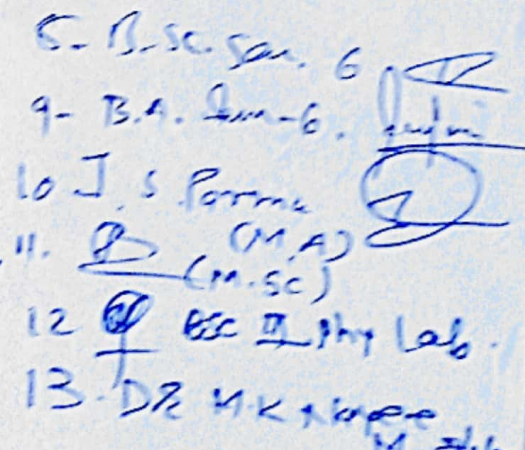 5- B.Sc. Sem. 6
9- B.A. Sem-6.
10 J. S. Parma
11. (M.A)
(M.SC)
12 BSC III Phy Lab.
13. DR M.K